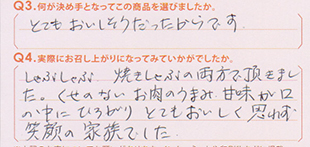 Q3.何が決め手となってこの商品を選びましたか。
とてもおいしそうだったからです.
Q4.実際にお召し上がりになってみていかがでしたか。
しゃぶしゃぶ 焼きしゃぶの両方で頂きまし
た。くせのない お肉のうまみ、甘味が口
の中にひろがり とてもおいしく 思わず
笑顔の家族でした.